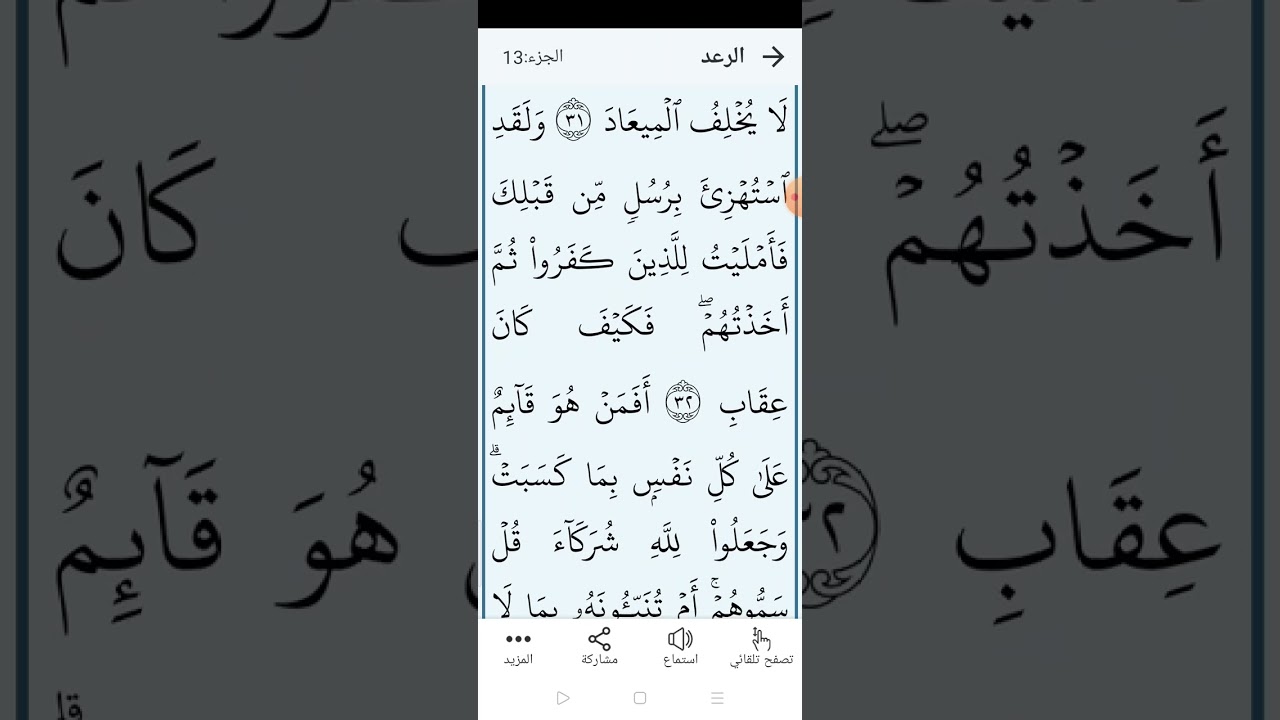 الرعد
الجزء:13
لَا يُخْلِفُ ٱلْمِيعَادَ ٣١ وَلَقَدِ
ٱسْتُهْزِئَ بِرُسُلٍ مِّن قَبْلِكَ
فَأَمْلَيْتُ لِلَّذِينَ كَفَرُوا۟ ثُمَّ
أَخَذْتُهُمْ ۖ فَكَيْفَ كَانَ
عِقَابِ ٣٢ أَفَمَنْ هُوَ قَآئِمٌ
عَلَىٰ كُلِّ نَفْسٍۭ بِمَا كَسَبَتْ ۗ
وَجَعَلُوا۟ لِلَّهِ شُرَكَآءَ قُلْ
سَمُّوهُمْ ۚ أَمْ تُنَبِّـُٔونَهُۥ بِمَا لَا
تصفح تلقائي
استماع
مشاركة
المزيد